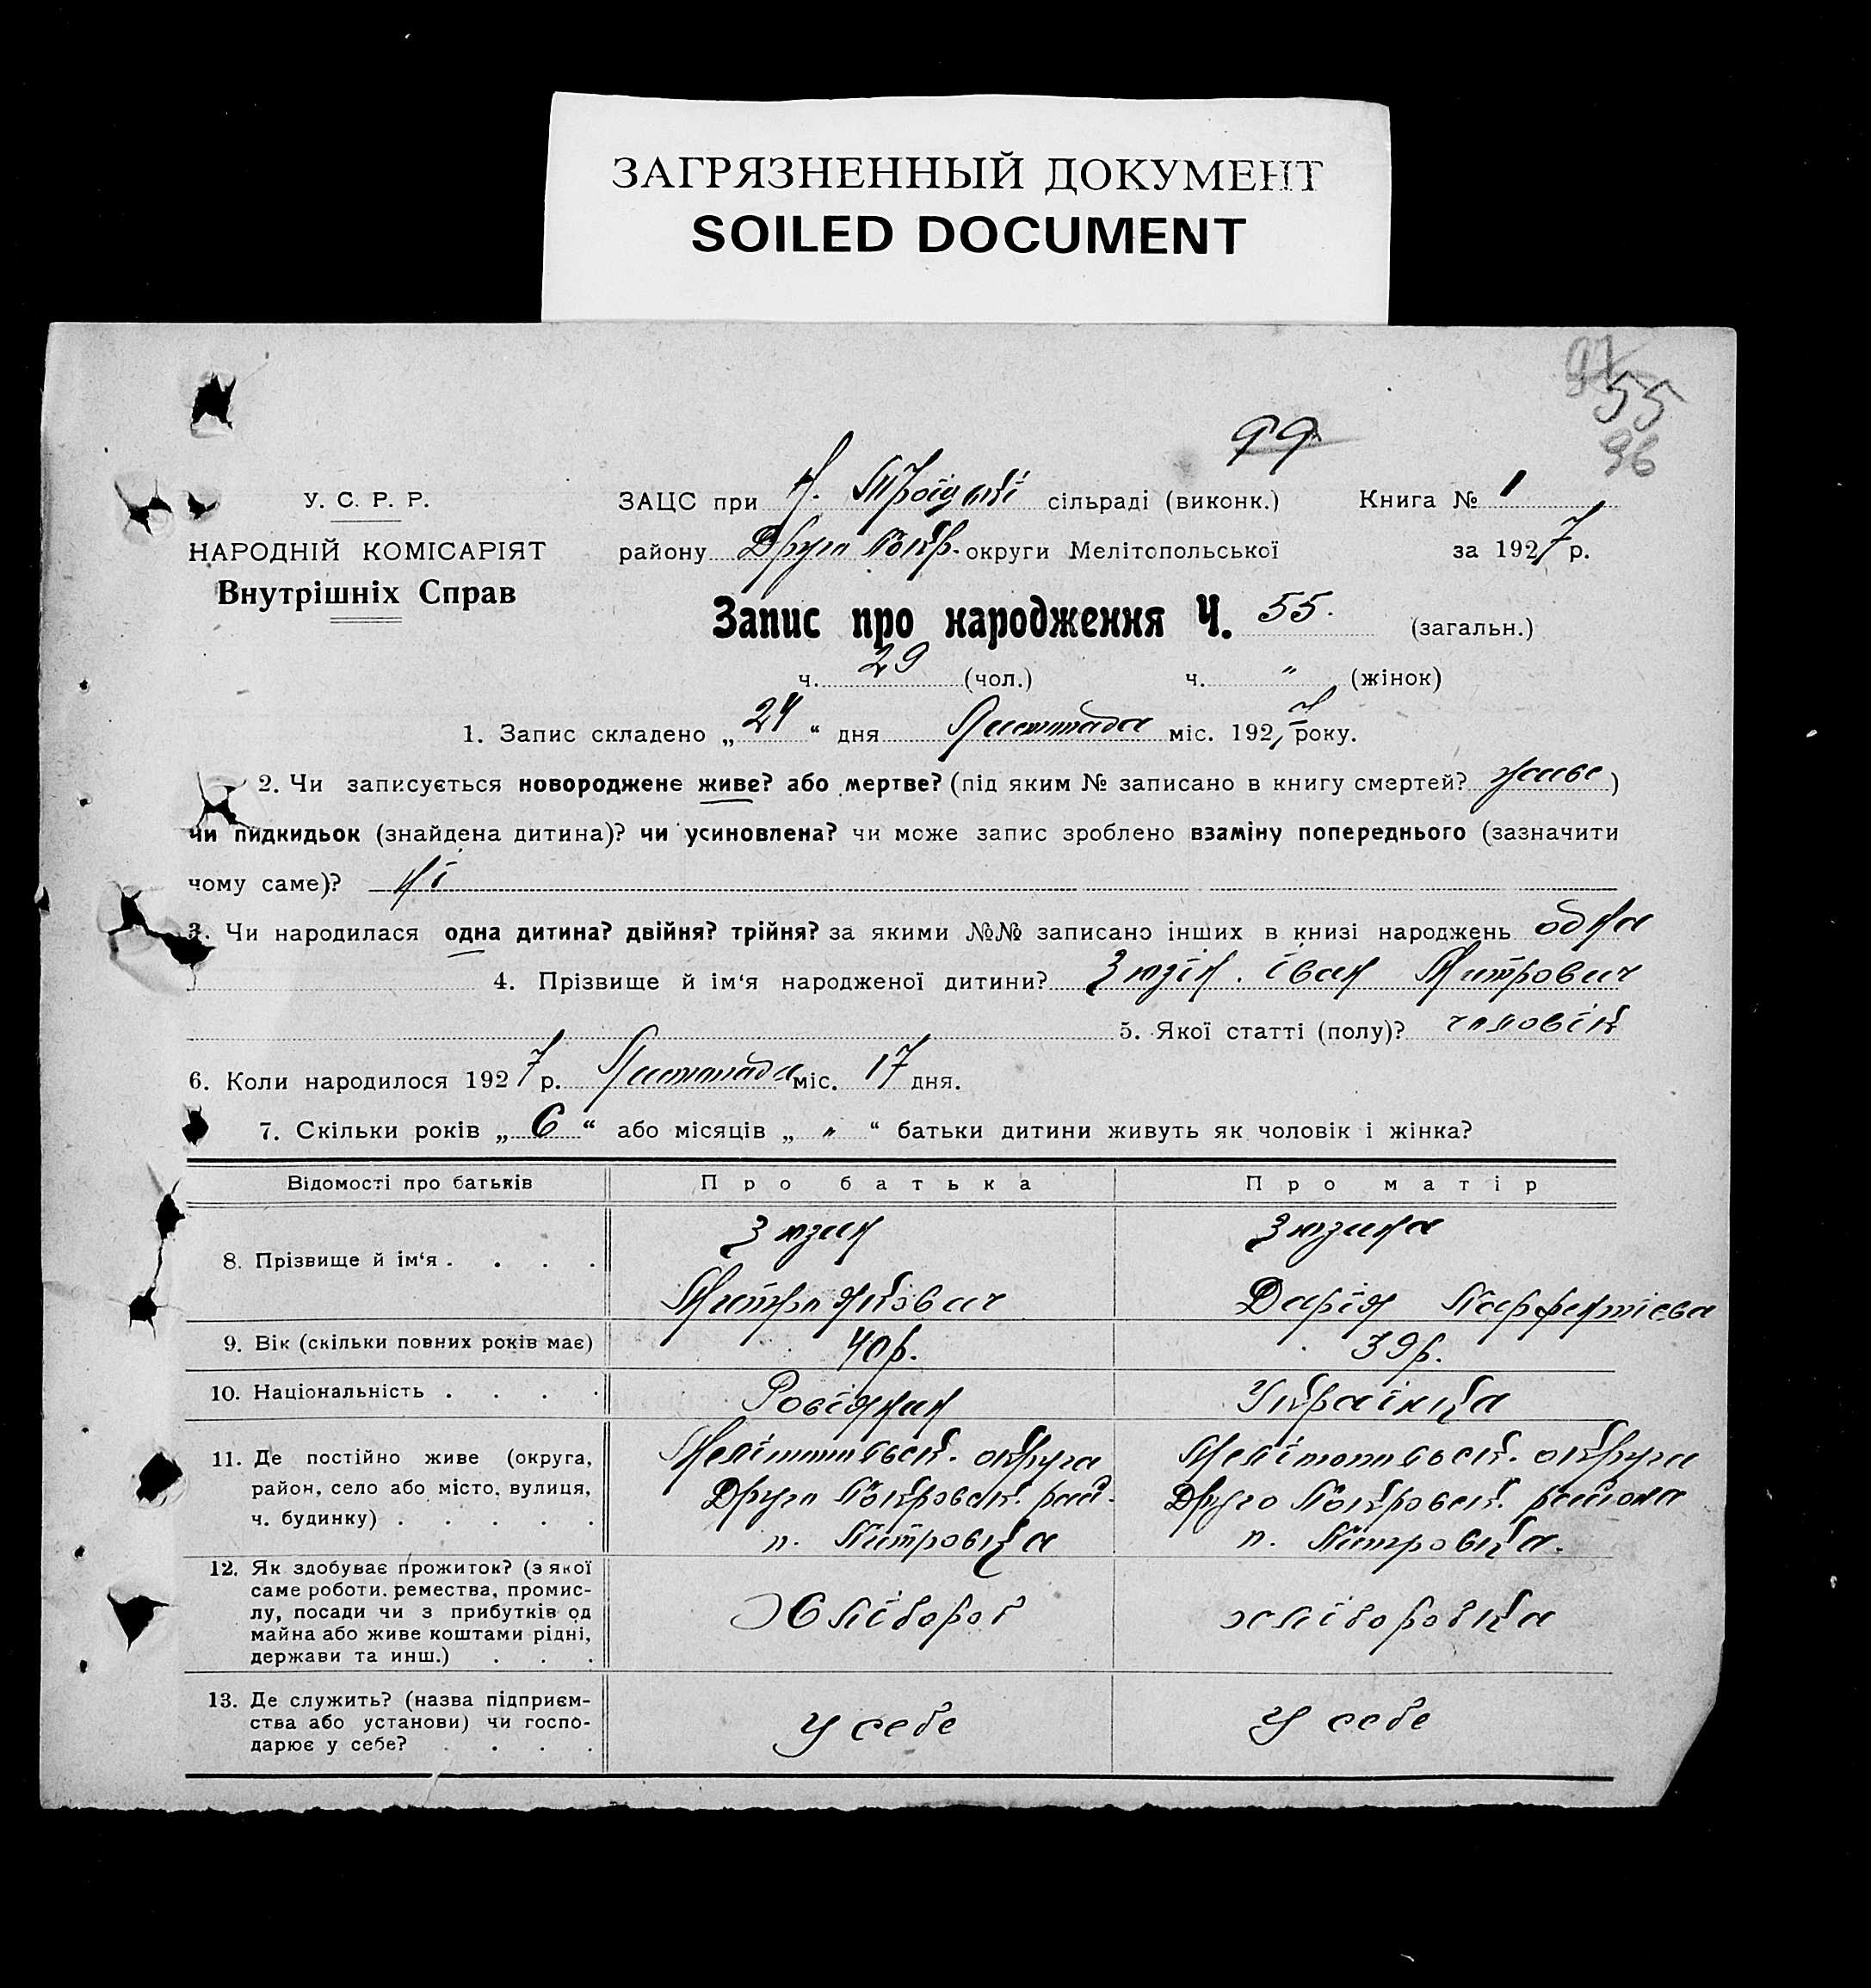 ЗАГРЯЗНЕННЫЙ ДОКУМЕНТ
SOILED DOCUMENT
97
55
96
99
У. С. Р. Р.
НАРОДНІЙ КОМІСАРІЯТ
Внутрішніх Справ
ЗАЦС при Н. Троіцькі сільраді (виконк.) Книга № 1
району Друго Покр. округи Мелітопольської за 1927 р.
Запис про народження Ч. 55. (загальн.)
ч. 29 (чол.) ч. " (жінок)
1. Запис складено „24“ дня Листопада міс. 1927 року.
2. Чи записується новороджене живе? або мертве? (під яким № записано в книгу смертей? живе)
чи пидкидьок (знайдена дитина)? чи усиновлена? чи може запис зроблено взаміну попереднього (зазначити
чому саме)? Ні
3. Чи народилася одна дитина? двійня? трійня? за якими №№ записано інших в книзі народжень одна
4. Прізвище й ім‘я народженої дитини? Зюзін. Іван Митрович
5. Якої статті (полу)? чоловік
6. Коли народилося 1927 р. Листопада міс. 17 дня.
7. Скільки років „6“ або місяців „ " “ батьки дитини живуть як чоловік і жінка?
Відомості про батьків Про батька Про матір
8. Прізвище й ім‘я . . . . Зюзин Зюзина
Митро Дарія
9. Вік (скільки повних років має) 40р. 39р.
10. Національність . . . . Росіянин Українка
11. Де постійно живе (округа, Мелітопільськ. округа Мелітопольськ. округа
район, село або місто, вулиця, Друго Покровськ. рай. Друго Покровськ. района
ч. будинку) . . . . . п. Петровка п. Петровка.
12. Як здобуває прожиток? (з якої
саме роботи, ремества, промис-
лу, посади чи з прибутків од Хлібороб хліборобка
майна або живе коштами рідні,
держави та инш.) . . .
13. Де служить? (назва підприєм-
ства або установи) чи госпо- У себе У себе
дарює у себе? . . . .